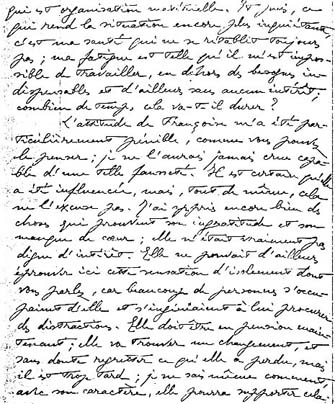 qui est organisation matérielle. Et puis, ce
qui rend la situation encore plus inquiétante,
c'est ma santé qui ne se rétablit toujours
pas ; ma fatigue est telle qu'il m'est impos-
sible de travailler, en dehors de besognes in-
dispensables et d'ailleurs sans aucun intérêt ;
combien de temps cela va-t-il durer ?
L'attitude de Françoise m'a été par-
ticulièrement pénible, comme vous pouvez
le penser ; je ne l'aurais jamais crue capa-
ble d'une telle fausseté. Il est certain qu'elle
a été influencée, mais, tout de même, cela
ne l'excuse pas. J'ai appris encore bien des
choses qui prouvent son ingratitude et son
manque de cœur ; elle n'était vraiment pas
digne d'intérêt. Elle ne pouvait d'ailleurs
éprouver ici cette sensation d'isolement dont
vous parlez, car beaucoup de personnes s'occu-
paient d'elle et s'ingéniaient à lui procurer
des distractions. Elle doit être en pension main-
tenant ; elle va trouver un changement, et
sans doute regretter ce qu'elle a perdu, mais
il est trop tard ; je ne sais même comment,
avec son caractère, elle pourra supporter cela.